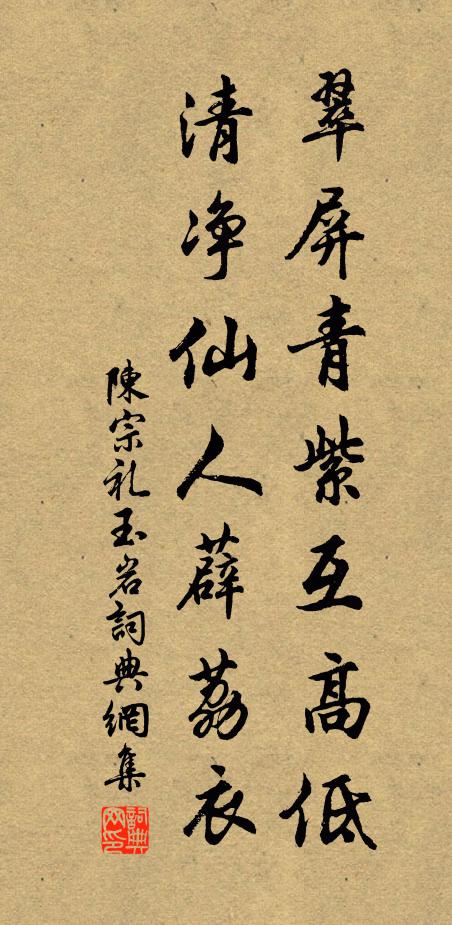 翠屏青紫互高低
清净仙人薜荔衣
陳宗礼玉岩詞典網集
詞典网印